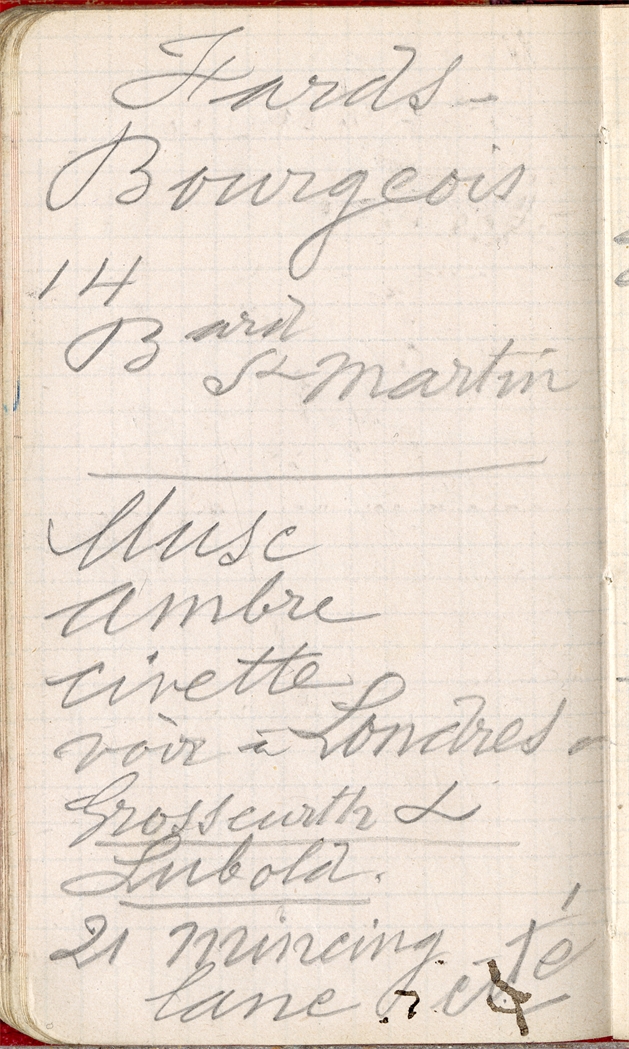 Fards -
Bourgeois
14
Bard
St Martin
Musc
ambre
civette
voir à Londres -
Grosscurth &
Lubold.
21 mincing
lane